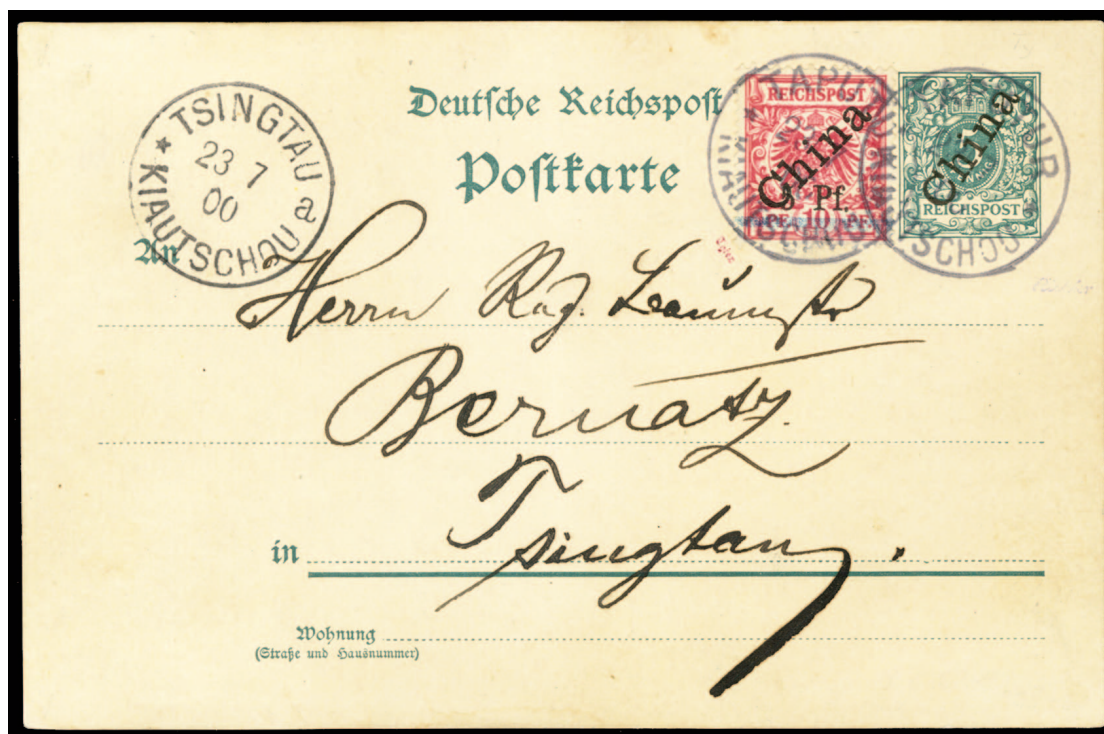 Deutsche Reichspost
Postkarte
TSINGTAU
23 7
00
a
★ KIAUTSCHOU
REICHSPOST
China
5 Pf.
PF. 10 PF.
China
REICHSPOST
TAPUTUR
KIAUTSCHOU
An
Herrn Reg. Baumstr
Bernatz
in Tsingtau.
Wohnung
(Straße und Hausnummer)